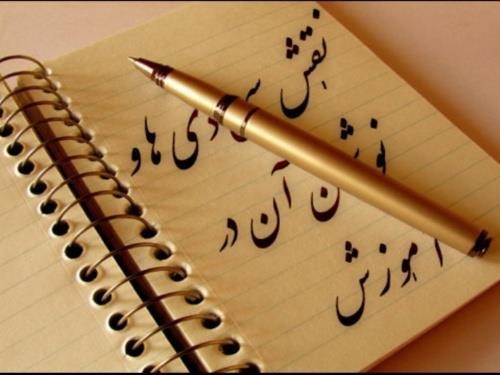 نقش سی دی ها و
نوشتن آن در
آموزش